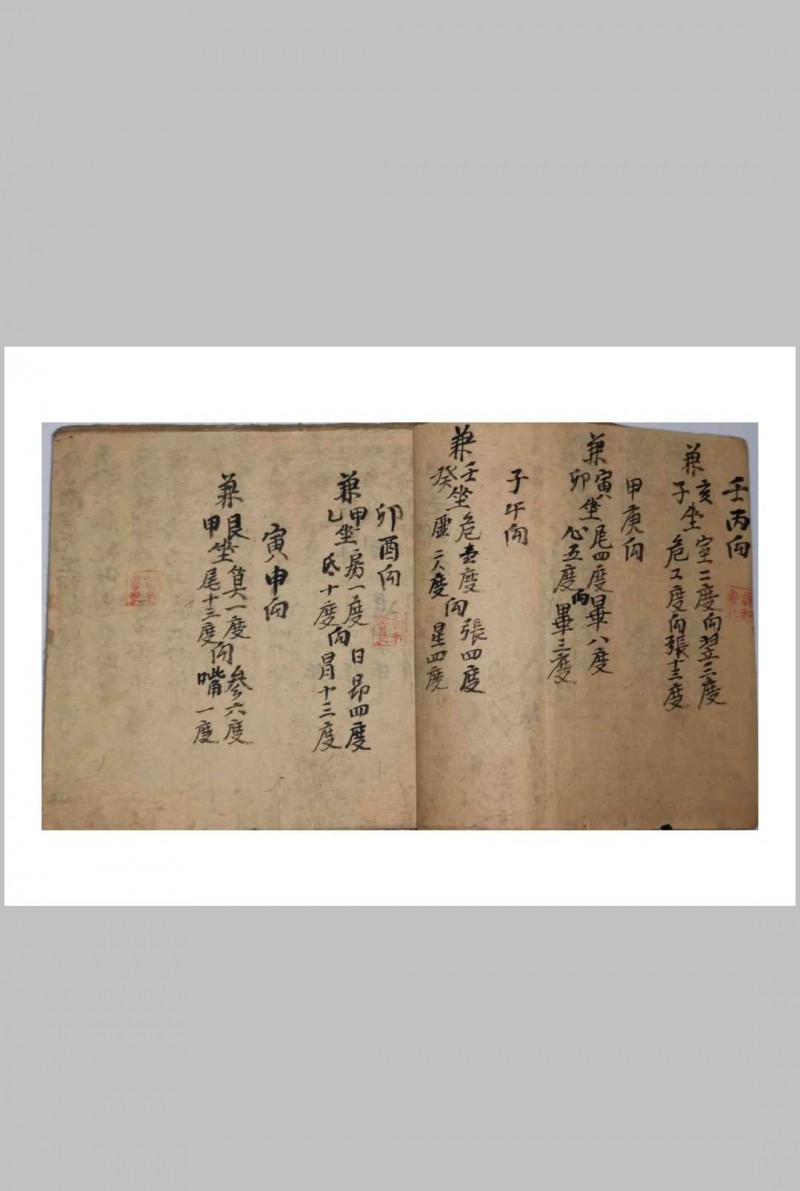 壬丙向
兼
亥坐室二度向翌三度
子 危工度向張十三度
甲庚向
兼
寅坐尾四度向畢八度
卯 心五度 畢三度
子午向
兼
壬坐危壹度向張四度
癸 虛六度 星四度
卯酉向
兼
甲坐房一度向昴四度
乙 氐十度 胃十三度
寅申向
兼
艮坐箕一度向參六度
甲 尾十三度 嘴一度